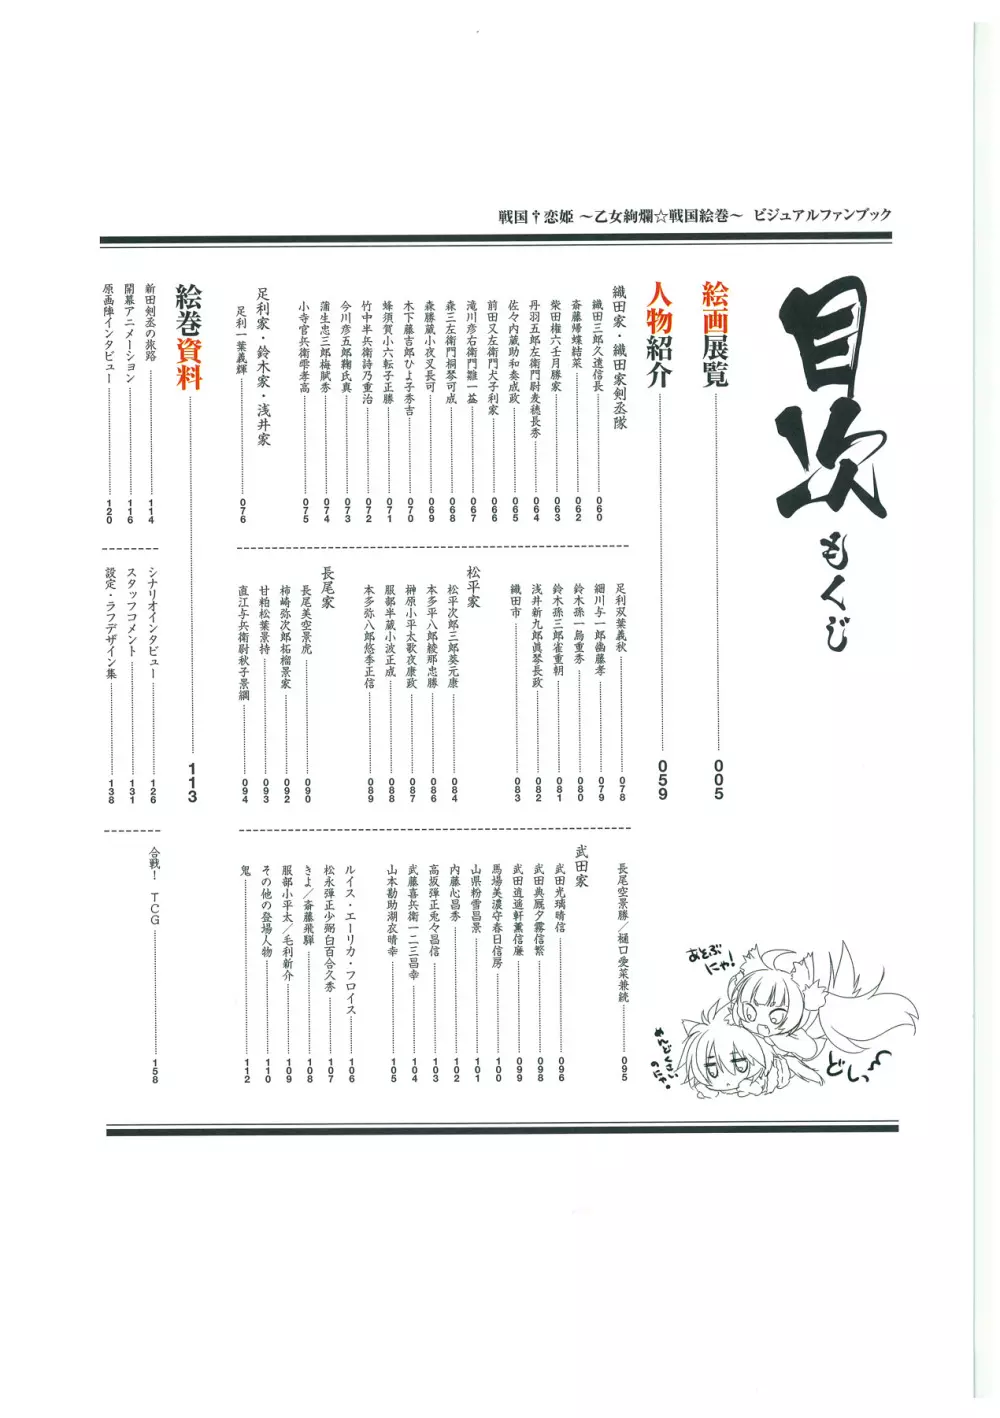 戦国†恋姫 ～乙女絢爛☆戦国絵巻～ ビジュアルファンブック
目次
もくじ
絵画展覧 005
人物紹介 059
織田家・織田家剣丞隊
織田三郎久遠信長 060
斎藤帰蝶結菜 062
柴田権六壬月勝家 063
丹羽五郎左衛門尉麦穂長秀 064
佐々内蔵助和奏成政 065
前田又左衛門犬子利家 066
滝川彦右衛門雛一益 067
森三左衛門桐琴可成 068
森勝蔵小夜叉長可 069
木下藤吉郎ひよ子秀吉 070
蜂須賀小六転子正勝 071
竹中半兵衛詩乃重治 072
今川彦五郎鞠氏真 073
蒲生忠三郎梅賦秀 074
小寺官兵衛雫孝高 075
足利家・鈴木家・浅井家
足利一葉義輝 076
足利双葉義秋 078
細川与一郎幽藤孝 079
鈴木孫一烏重秀 080
鈴木孫三郎雀重朝 081
浅井新九郎眞琴長政 082
織田市 083
松平家
松平次郎三郎葵元康 084
本多平八郎綾那忠勝 086
榊原小平太歌夜康政 087
服部半蔵小波正成 088
本多弥八郎悠季正信 089
長尾家
長尾美空景虎 090
柿崎弥次郎柘榴景家 092
甘粕松葉景持 093
直江与兵衛尉秋子景綱 094
長尾空景勝／樋口愛菜兼続 095
武田家
武田光璃晴信 096
武田典厩夕霧信繁 098
武田逍遥軒薫信廉 099
馬場美濃守春日信房 100
山県粉雪昌景 101
内藤心昌秀 102
高坂弾正兎々昌信 103
武藤喜兵衛一二三昌幸 104
山本勘助湖衣晴幸 105
ルイス・エーリカ・フロイス 106
松永弾正少弼白百合久秀 107
きよ／斎藤飛騨 108
服部小平太／毛利新介 109
その他の登場人物 110
鬼 112
絵巻資料 113
新田剣丞の旅路 114
開幕アニメーション 116
原画陣インタビュー 120
シナリオインタビュー 126
スタッフコメント 131
設定・ラフデザイン集 138
合戦！ TCG 158
あそぶにゃ！
めんどくさいのにゃ。
どしっ